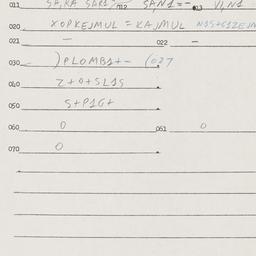 011 SA,KA SAR1 012 SAN1=- 013 VI,N1
020 XOPKEJMUL = KAJMUL N1S+G1ZEJM
021 — 022 —
030 )PLOMB1+- (027
040 Z+0+SL1S
050 S+P1G+
060 0 061 0
070 0